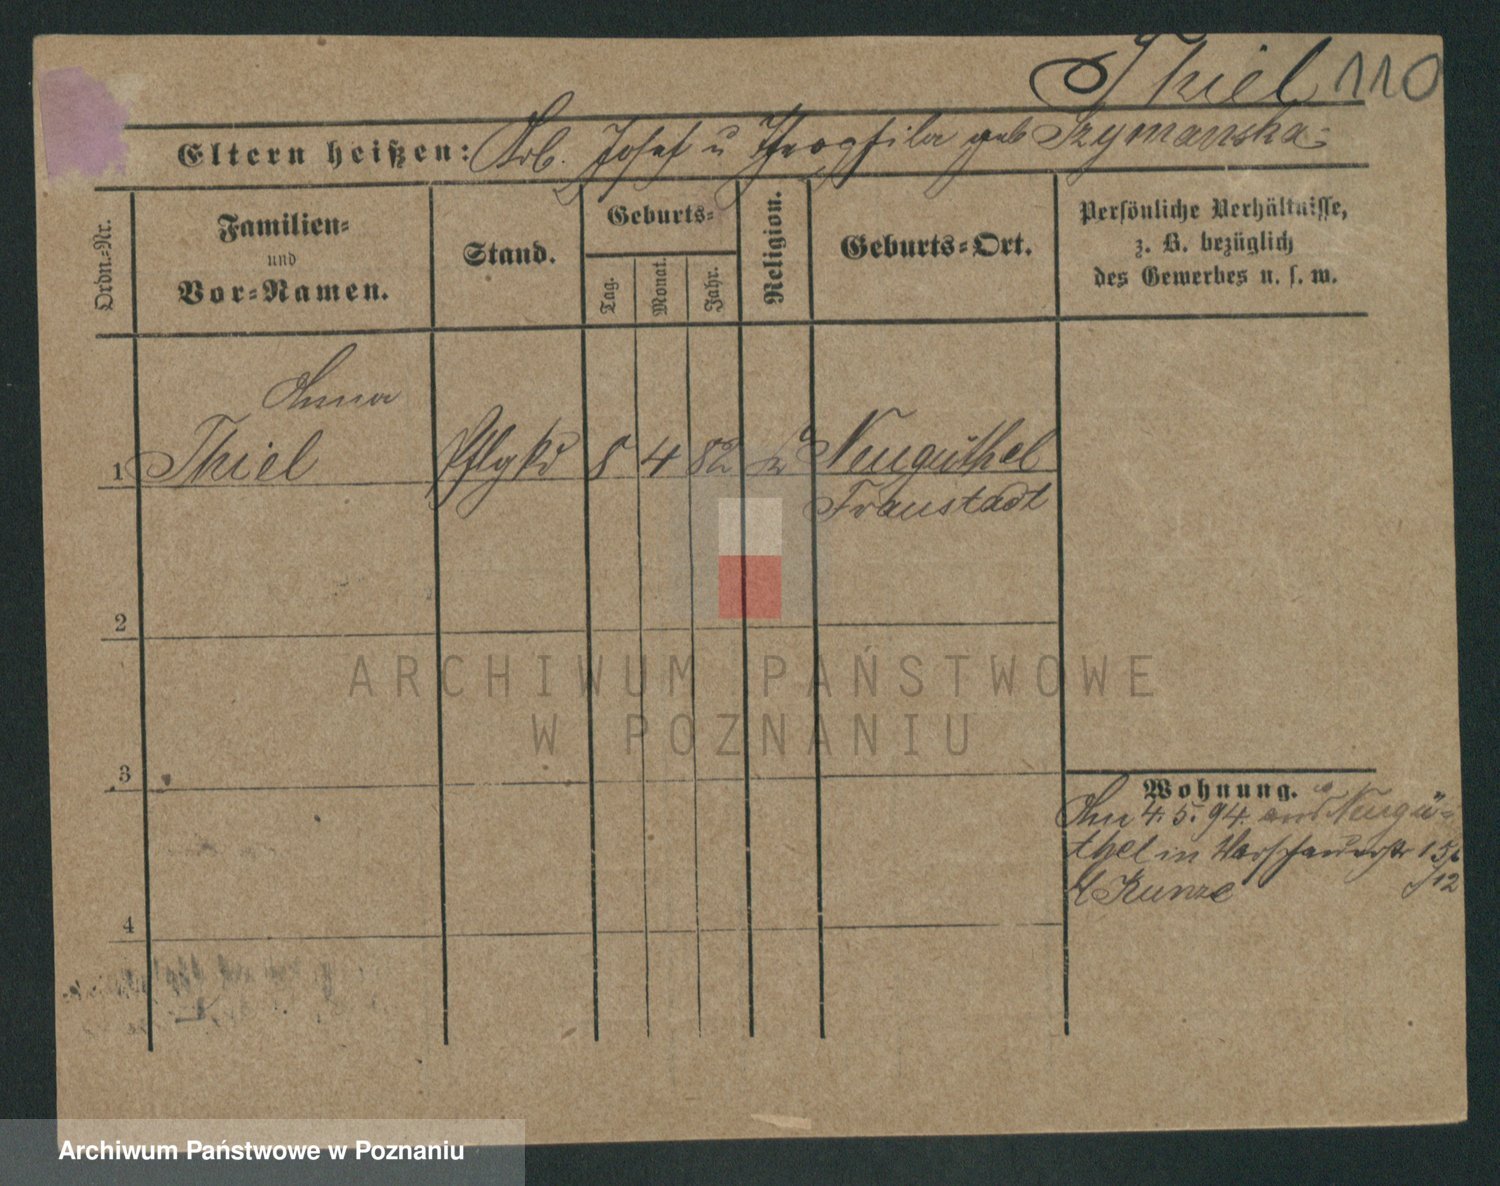 Thiel 110
Eltern heißen: Arb. Josef u Theophila geb Szymanska
Ordn.-Nr.
Familien-
und
Vor-Namen.
Stand.
Geburts-
Tag.
Monat.
Jahr.
Religion.
Geburts-Ort.
Persönliche Verhältnisse,
z. B. bezüglich
des Gewerbes u. s. w.
Anna
1 Thiel Pflgkd 8 4 82 k Neugüthel
Fraustadt
2
ARCHIWUM PAŃSTWOWE
W POZNANIU
3
Wohnung.
Am 4.5.94. aus Neugü-
thel in Warschauerstr 15
b/ Kunze
4
Archiwum Państwowe w Poznaniu